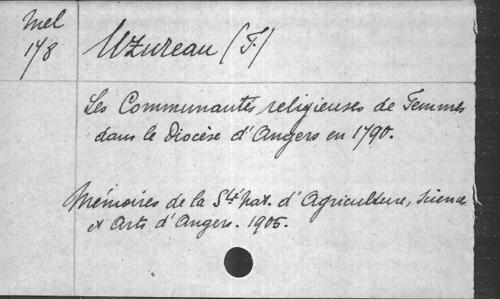 Mel
178
Uzureau (F.)
Les Communautés religieuses de Femmes
dans le Diocèse d'Angers en 1790.
Mémoires de la Sté Nat. d'Agriculture, Science
et Arts d'Angers. 1905.